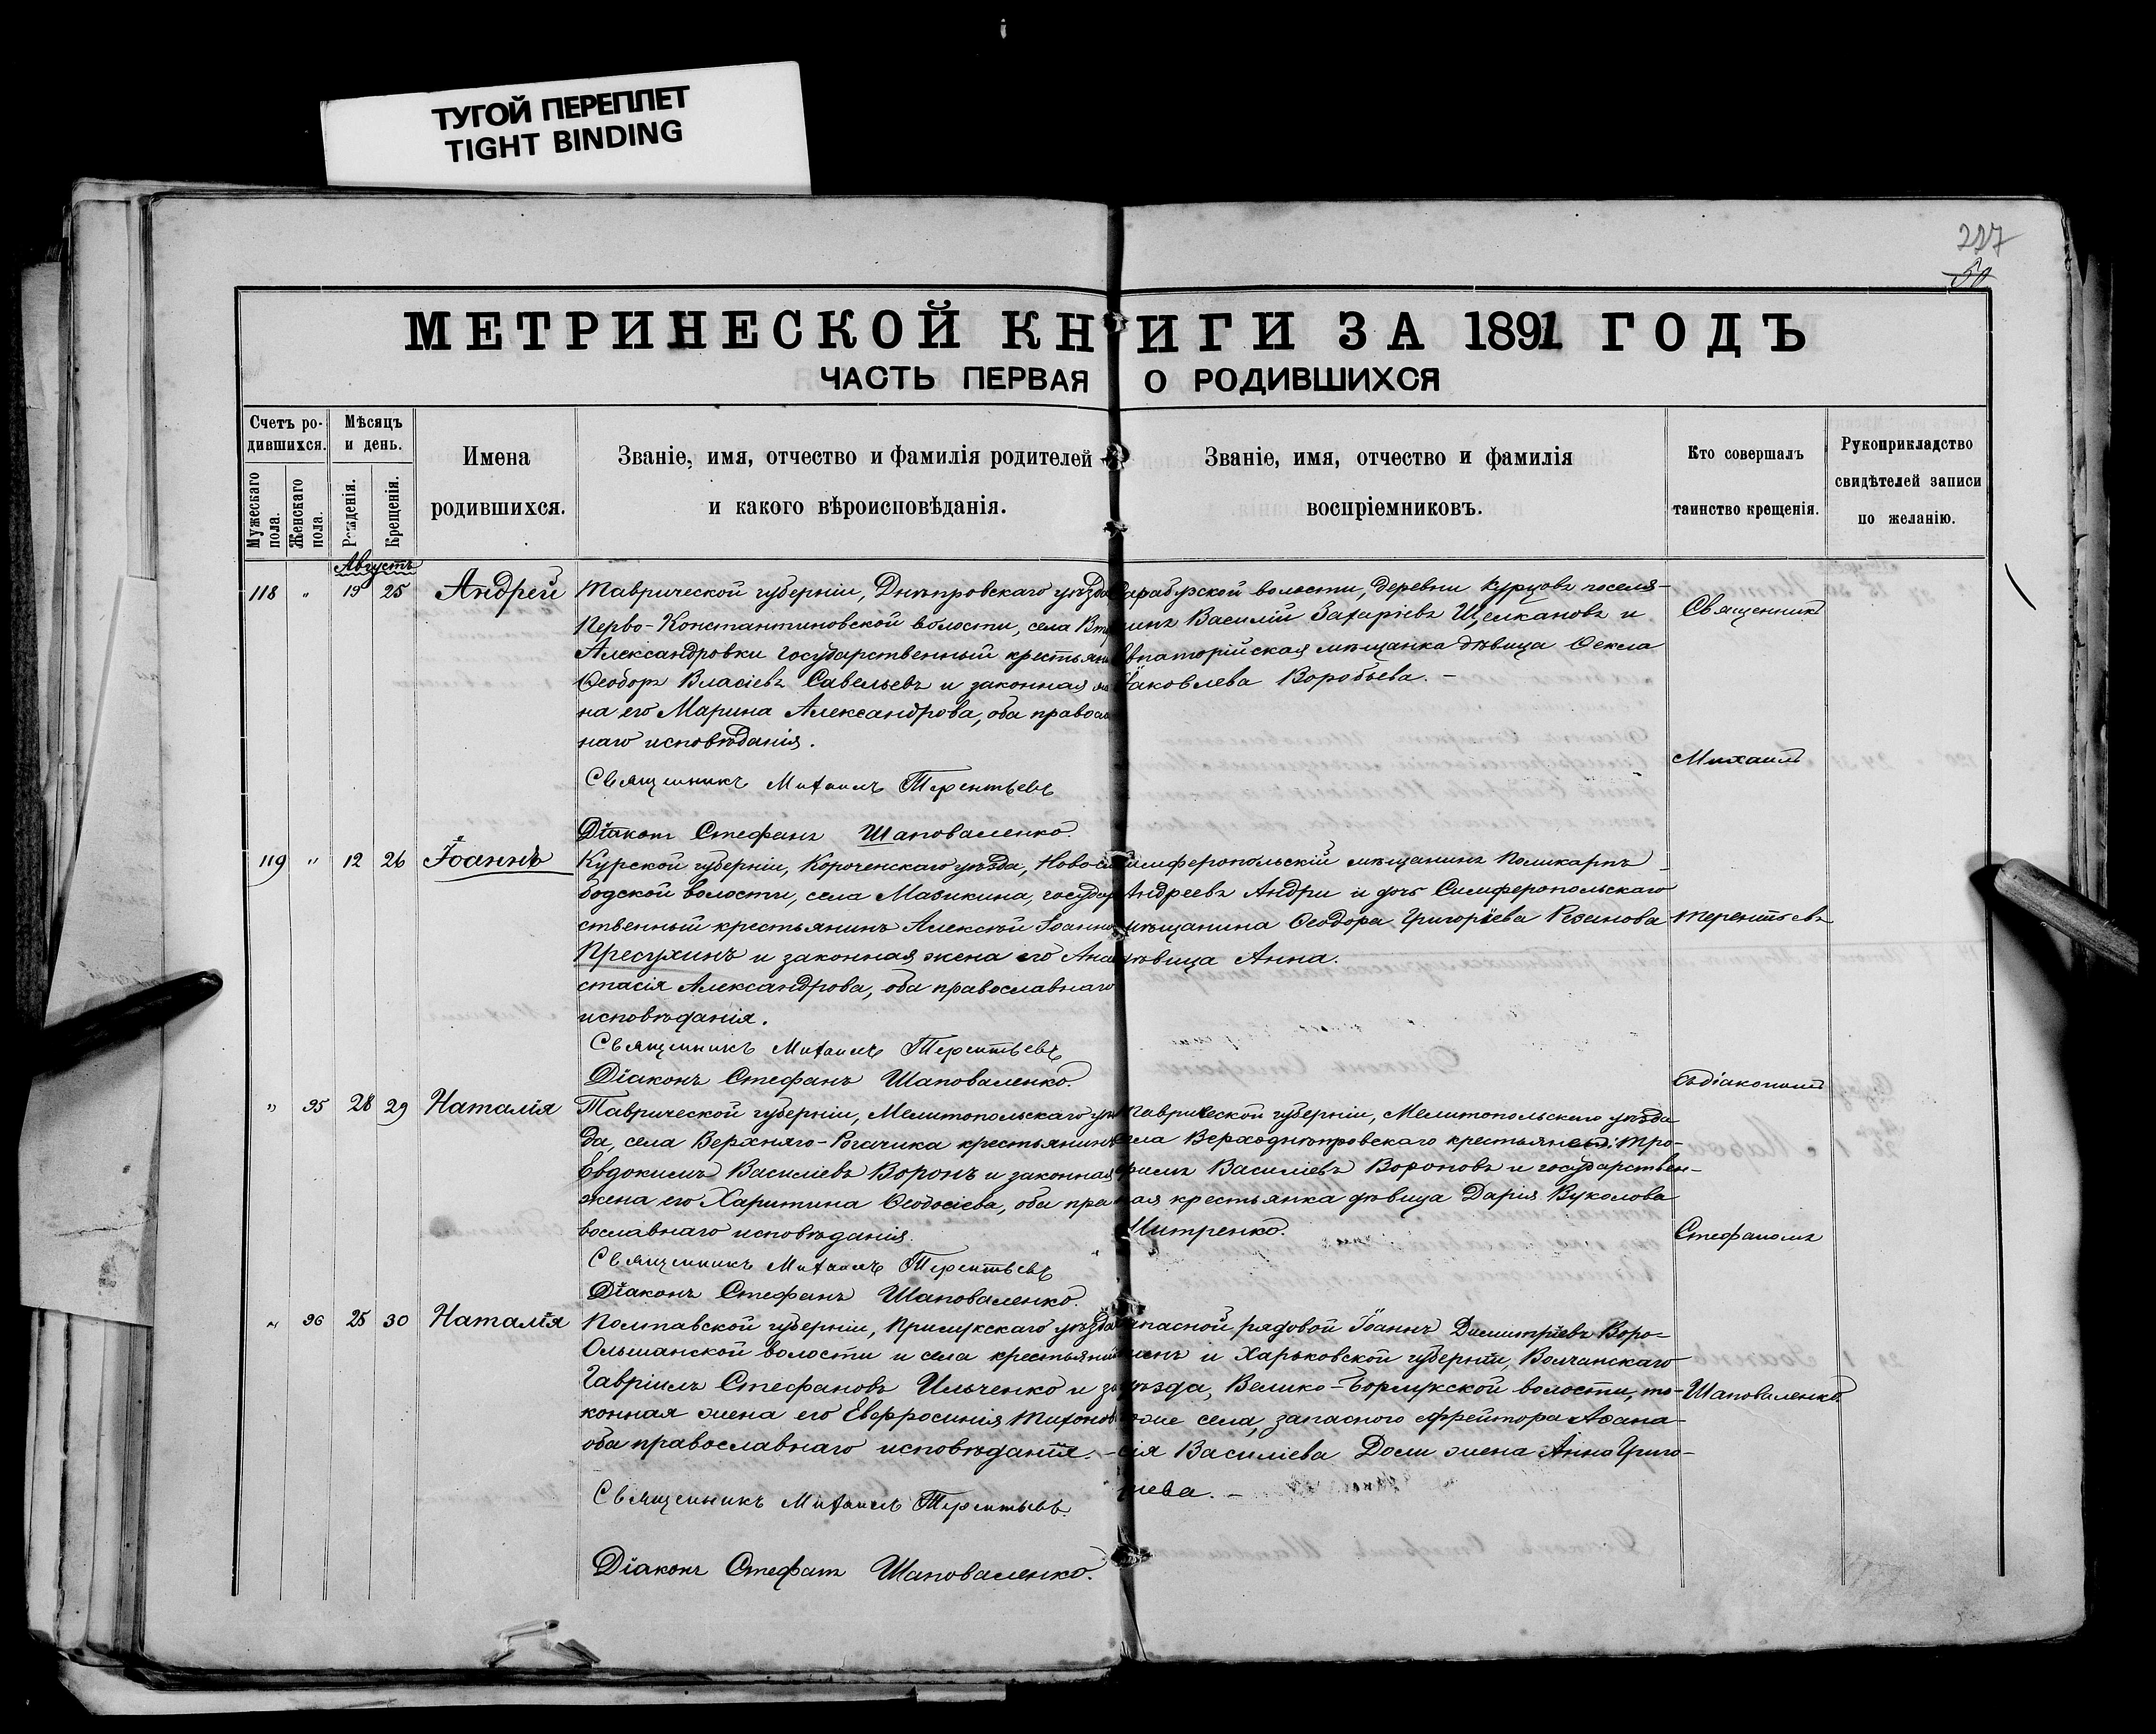 ТУГОЙ ПЕРЕПЛЕТ
TIGHT BINDING
227
50
МЕТРИЧЕСКОЙ КНИГИ ЗА 1891 ГОДЪ
ЧАСТЬ ПЕРВАЯ О РОДИВШИХСЯ
Счетъ ро-
дившихся.
Мужескаго пола.
Женскаго пола.
Мѣсяцъ
и день.
Рожденія.
Крещенія.
Имена
родившихся.
Званіе, имя, отчество и фамилія родителей
и какого вѣроисповѣданія.
Званіе, имя, отчество и фамилія
воспріемниковъ.
Кто совершалъ
таинство крещенія.
Рукоприкладство
свидѣтелей записи
по желанію.
Августъ
118 " 19 25 Андрей
Таврической губерніи, Днѣпровскаго уѣзда
Перво-Константиновской волости, села Вт
Александровки государственный крестьян
Ѳеодоръ Власіевъ Савельевъ и законная же
на его Марина Александрова, оба правосл
наго исповѣданія.
Священникъ Михаилъ Терентьевъ
Діаконъ Стефанъ Шаповаленко.
Сарабузской волости, деревни Курцовъ поселя-
нинъ Василій Захаріевъ Щелкановъ и
Евпаторійская мѣщанка дѣвица Ѳекла
Іаковлева Воробьева. –
119 " 12 26 Іоаннъ
Курской губерніи, Короченскаго уѣзда, Ново-сло
бодской волости, села Мазикина, государ
ственный крестьянинъ Алексѣй Іоанно
Пресухинъ и законная жена его Ана
стасія Александрова, оба православнаго
исповѣданія.
Священникъ Михаилъ Терентьевъ
Діаконъ Стефанъ Шаповаленко.
Симферопольскій мѣщанинъ Поликарпъ
Андреевъ Андри и дочь Симферопольскаго
мѣщанина Ѳеодора Григоріева Резанова
дѣвица Анна.
" 95 28 29 Наталія
Таврической губерніи, Мелитопольскаго уѣз
да, села Верхняго-Рогачика крестьянинъ
Евдокимъ Василіевъ Воронъ и законная
жена его Харитина Ѳеодосіева, оба пра
вославнаго исповѣданія.
Священникъ Михаилъ Терентьевъ
Діаконъ Стефанъ Шаповаленко.
Таврической губерніи, Мелитопольскаго уѣзда
села Верходнѣпровскаго крестьян Тро-
фимъ Василіевъ Вороновъ и государствен-
ная крестьянка дѣвица Дарія Вуколова
Митренко.
" 96 25 30 Наталія
Полтавской губерніи, Прилукскаго уѣзда
Ольшанской волости и села крестьянин
Гавріилъ Стефановъ Ильченко и за
конная жена его Евфросинія Тихонов
оба православнаго исповѣданія. –
Священникъ Михаилъ Терентьевъ.
Діаконъ Стефанъ Шаповаленко.
Запасной рядовой Іоаннъ Димитріевъ Воро-
и Харьковской губерніи, Волчанскаго
уѣзда, Велико-Бурлукской волости, то-
же села, запасного ефрейтора Аѳана-
сія Василіева Доли жена Анна Григо-
ріева. –
Священникъ
Михаилъ
Терентьевъ
съ діакономъ
Стефаномъ
Шаповаленко.